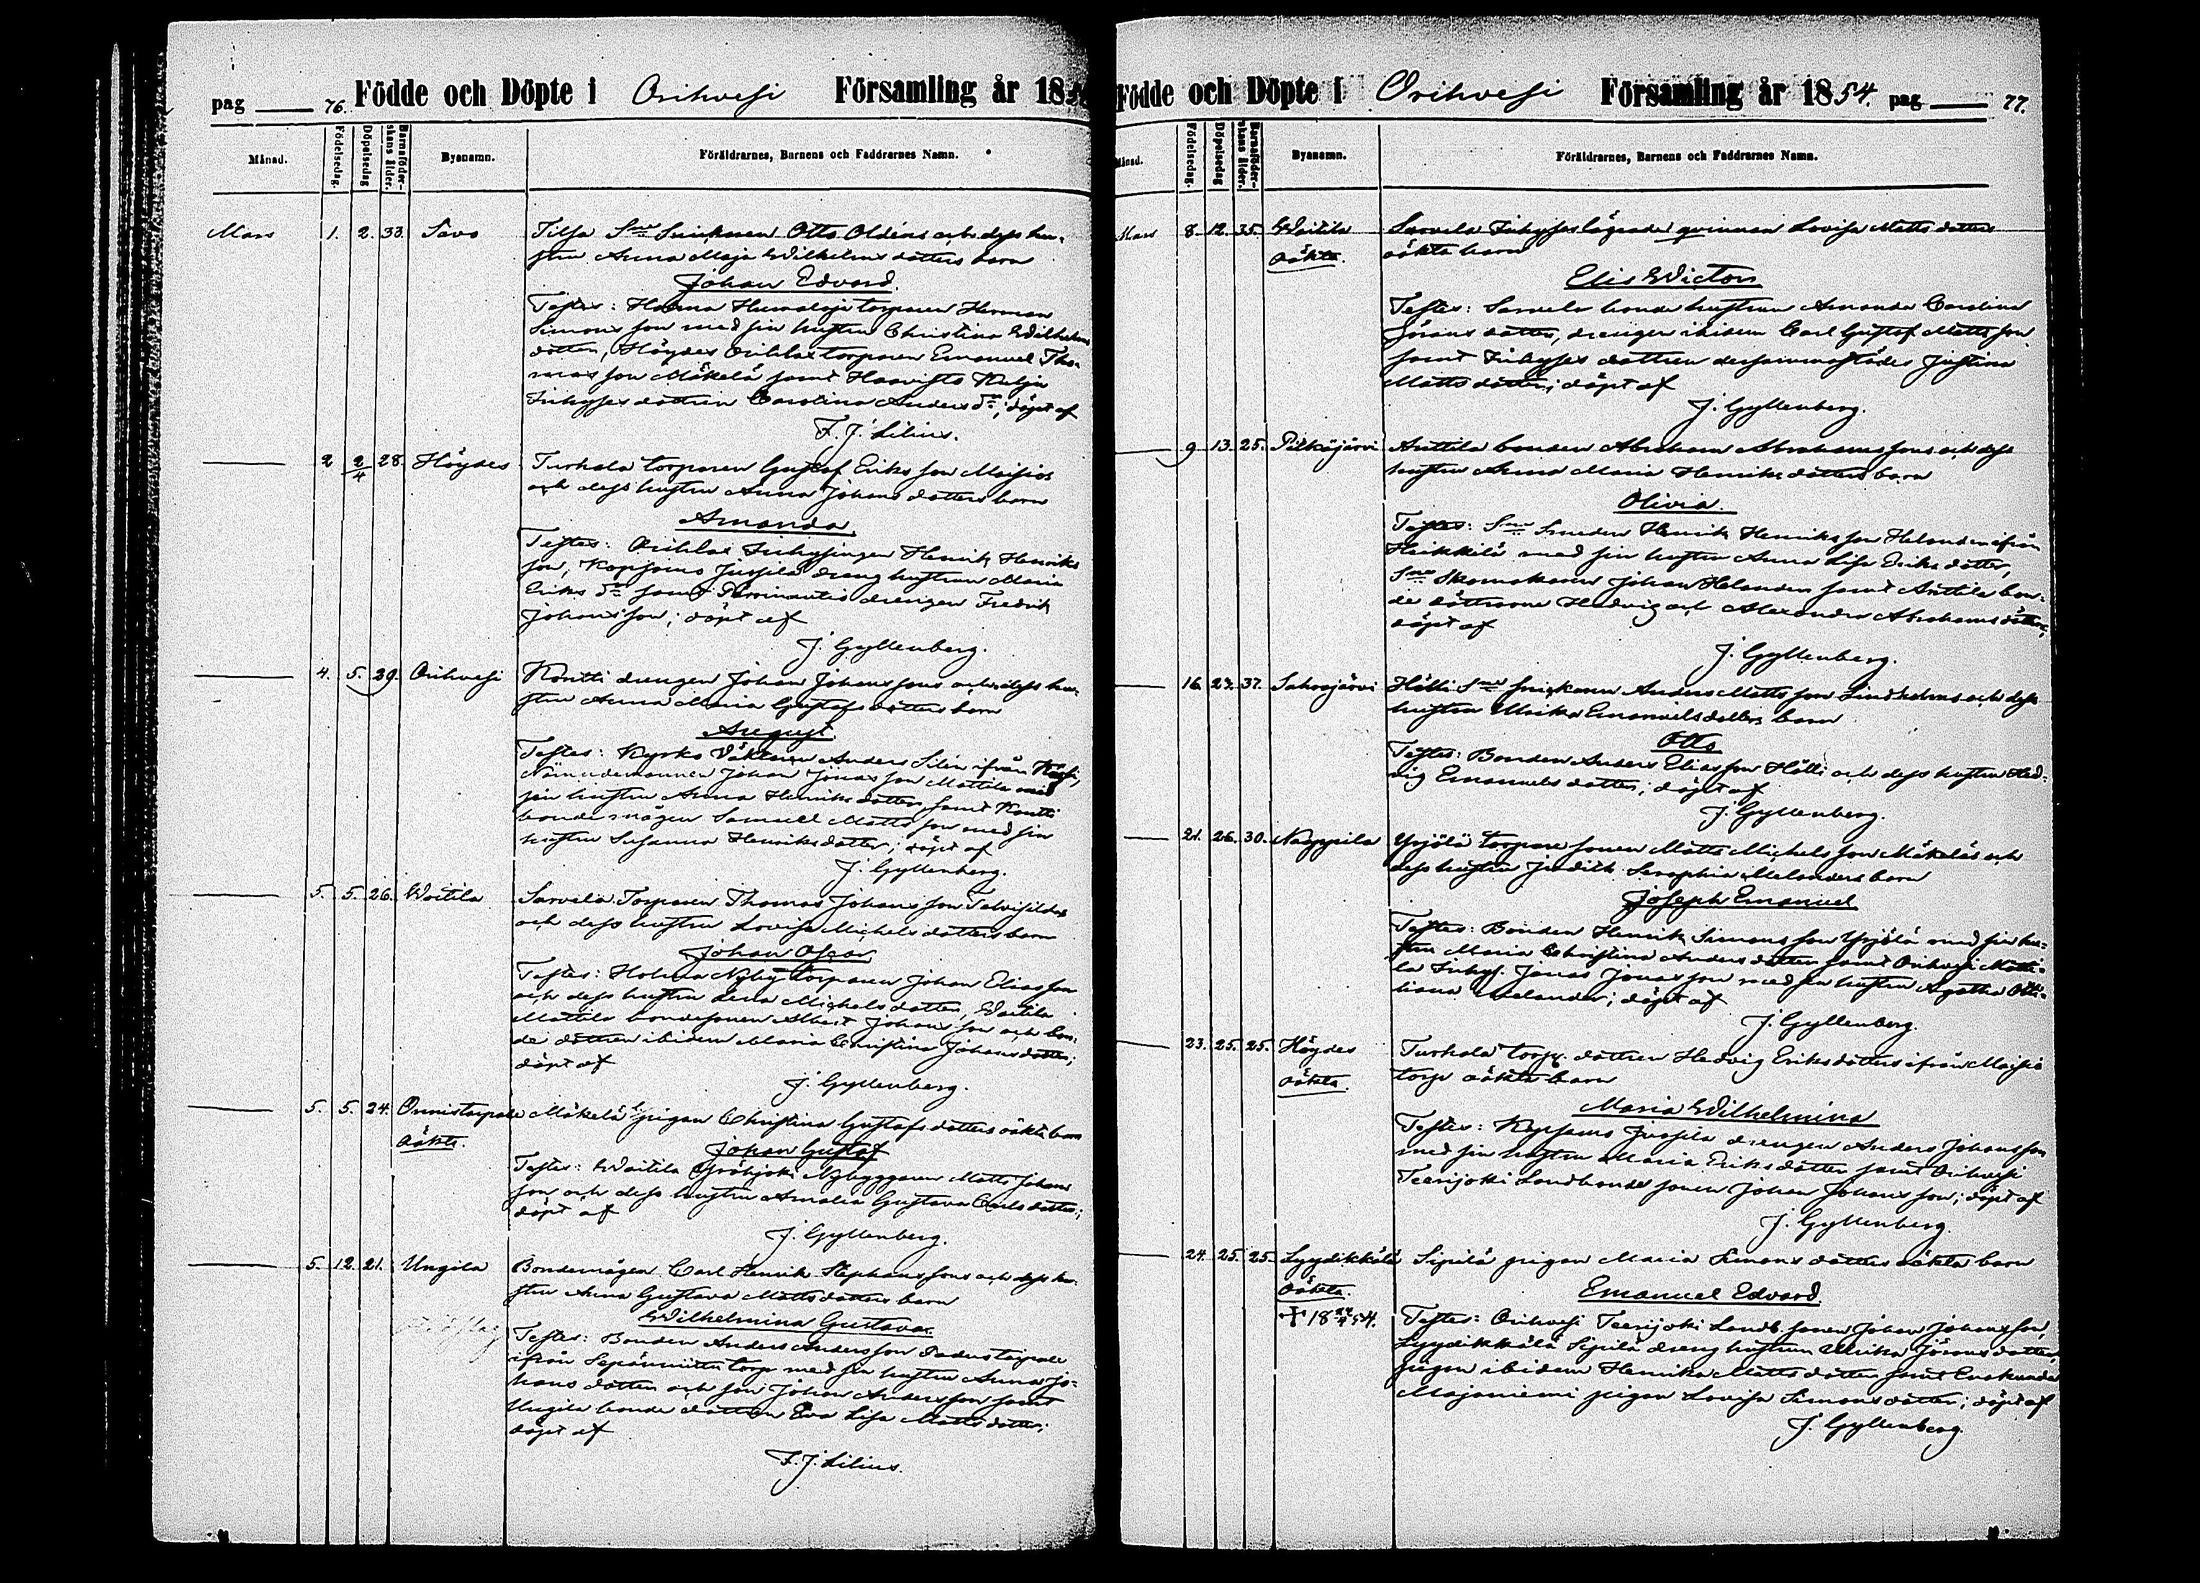 pag 76. Födde och Döpte i Orihvesi Församling år 1854
Månad. Födelsedag. Döpelsedag Barnaföderskans ålder. Byanamn. Föräldrarnes, Barnens och Faddrarnes Namn.
Mars 1. 2. 33. Sävo Otto Oldéns och dess hu-
stru Anna Maja Wilhelms dotters barn
Johan Edvard.
Testes: Humaloja torparen Herman
Simons son med sin hustru Christina Wilhelms
dotter, Höydes torparen Emanuel Tho-
mas son Mäkelä samt
Inhyses dottren Carolina Anders dr; döpt af
F. J. Lilius.
2 2/4 28. Höydes Turkala torparen Gustaf Eriks son
och dess hustru Anna Johans dotters barn
Amanda.
Testes: Inhysingen Henrik Henriks
son, Jussila dreng hustrun Maria
Eriks dr samt drengen Fredrik
Johans son; döpt af
J. Gyllenberg.
4. 5. 39. Orihvesi drengen Johan Johans sons och dess hu-
stru Anna Maria Gustafs dotters barn
August.
Testes: Kyrko Väktaren Anders Silén ifrån
Nämndemannen Johan Jonas son Mattila med
sin hustru Anna Henriks dotter, samt
bondemågen Samuel Matts son med sin
hustru Susanna Henriks dotter; döpt af
J. Gyllenberg.
5. 5. 26. Woitila Sarvela Torparen Thomas Johans son
och dess hustru Lovisa Michels dotters barn
Johan Oscar
Testes: Holma Nyby torparen Johan Elias son
och dess hustru Lena Michels dotter, Woitila
Mattila bondesonen Albert Johans son och bon-
de dottren ibidem Maria Christina Johans dotter;
döpt af
J. Gyllenberg.
5. 5. 24. Onnistaipale Mäkelä pigan Christina Gustafs dotters oäkta barn
oäkta. Johan Gustaf
Testes: Woitila Nybyggaren Matts Johans
son och dess hustru Amalia Gustava Carls dotter;
döpt af
J. Gyllenberg.
5. 12. 21. Ungila Bondemågen Carl Henrik Stephans sons och dess hu-
stru Anna Gustava Matts dotters barn
Wilhelmina Gustava.
Testes: Bonden Anders Anders son
ifrån torp med sin hustru Anna Jo-
hans dotter och son Johan Anders son samt
Ungila bonde dottren Eva Lisa Matts dotter;
döpt af
F. J. Lilius.
Födde och Döpte i Orihvesi Församling år 1854. pag 77.
Månad. Födelsedag. Döpelsedag Barnaföderskans ålder. Byanamn. Föräldrarnes, Barnens och Faddrarnes Namn.
Mars 8. 12. 35. Woitila Sarvela Inhyses lögande qvinnan Lovisa Matts dotters
oäkta. oäkta barn
Elis Wictor
Testes: Sarvela bonde hustrun Amanda Carolina
Jörans dotter, drengen ibidem Carl Gustaf Matts son,
samt Inhyses dottren dersammastädes Justina
Matts dotter; döpt af
J. Gyllenberg.
9. 13. 25. Pitkäjärvi Anttila bonden Abraham Abrahams sons och dess
hustru Anna Maria Henriks dotters barn
Olivia.
Testes: Smeden Henrik Henriks son Helander ifrån
Heikkilä med sin hustru Anna Lisa Eriks dotter,
Skomakaren Johan Helander samt Anttila bon-
de döttrarne Hedvig och Alexandra Abrahams döttrar,
döpt af
J. Gyllenberg.
16. 27. 37. Sahrajärvi Hölli Anders Matts son Lindholms och dess
hustru Ulrika Emanuels dotters barn
Otto
Testes: Bonden Anders Elias son Hölli och dess hustru Hed-
vig Emanuels dotter; döpt af
J. Gyllenberg.
21. 26. 30. Nappila Yrjölä torpare sonen Matts Michels son Mäkeläs och
dess hustru Judith Seraphia Melanders barn
Joseph Emanuel
Testes: Bonden Henrik Simons son Yrjölä med sin hu-
stru Maria Christina Anders dotter samt Orihvesi Matti-
la Inhys. Jonas Jonas son med sin hustru Agatha Otti-
liana Melander; döpt af
J. Gyllenberg.
23. 25. 25. Höydes Turkala torp. dottren Hedvig Eriks dotters ifrån
oäkta. torp oäkta barn
Maria Wilhelmina
Testes: Jussila drengen Anders Johans son
med sin hustru Maria Eriks dotter samt Orihvesi
Teerijoki Landbonde sonen Johan Johans son; döpt af
J. Gyllenberg.
24. 25. 25. Lyydikkälä Sipilä pigan Maria Simons dotters oäkta barn
oäkta. Emanuel Edvard.
Testes: Orihvesi Teerijoki Landb. sonen Johan Johans son,
Lyydikkälä Sipilä dreng hustrun Ulrika Jörans dotter,
pigan ibidem Henrika Matts dotter samt
Majaniemi pigan Lovisa Simons dotter; döpt af
J. Gyllenberg.